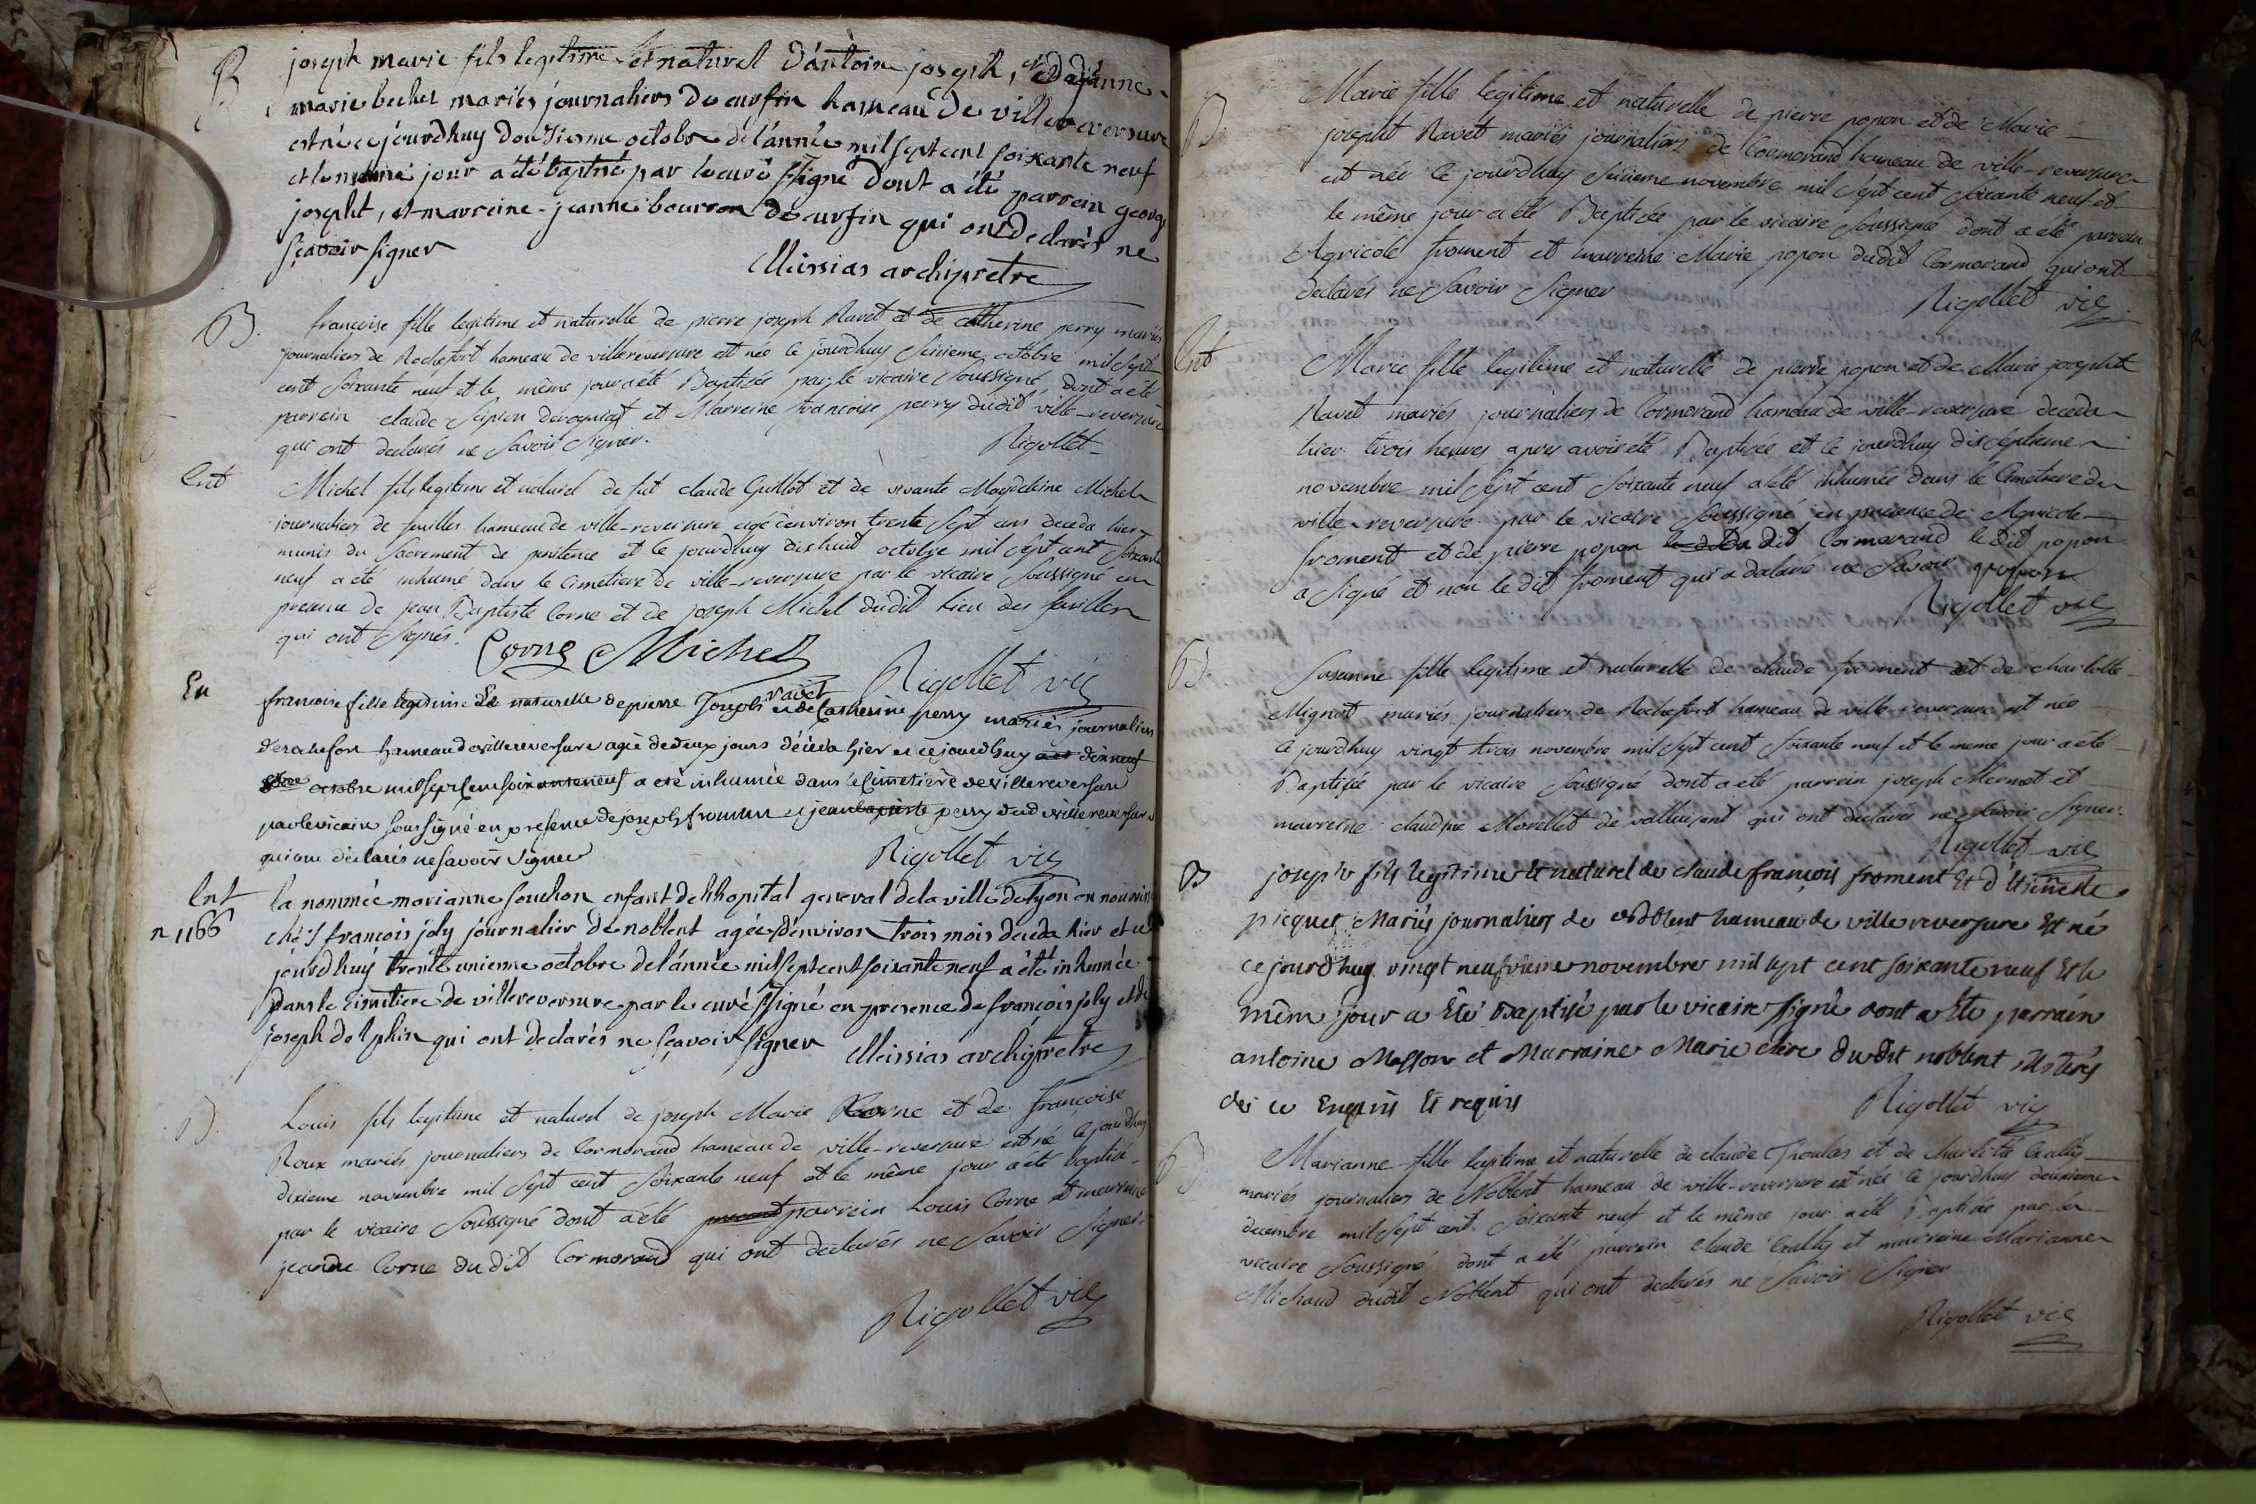 B
joseph marie fils legitime et naturel d'antoine joseph, et de jeanne
marie bechet mariés journaliers de curfin hameau de villereversure
est né ce jourdhuy douziesme octobre de l'année mil sept cent soixante neuf
et le même jour a été baptisé par le curé ssigné dont a été parrein george
josepht, et marreine jeanne bourron de curfin qui ont declarés ne
sçavoir signer
Meissias archiprêtre
B.
francoise fille legitime et naturelle de pierre joseph Ravet et de catherine perry mariés
journaliers de Rochefort hameau de villereversure est née ce jourdhuy seizieme octobre mil sept
cent soixante neuf et le même jour a été Baptisée par le vicaire soussigné, dont a été
parrein claude scipion et Marreine francoise perry dudit ville-reversure
qui ont declarés ne savoir signer.
Rigollet
Ent
Michel fils legitime et naturel de fut claude Guillot et de vivante Magdeleine Michel
journaliers de hameau de ville-reversure agé d'environ trente sept ans deceda hier
munis du sacrement de penitence et le jourdhuy dixhuit octobre mil sept cent soixante
neuf a été inhumé dans le Cimetiere de ville-reversure par le vicaire soussigné en
presence de jean Baptiste Corne et de joseph Michel dudit lieu des
qui ont signés.
Corne Michel
Rigollet vic
En
francoise fille legitime et naturelle de pierre Joseph ravet et de Catherine perry mariés journaliers
de rochefort hameau de villereversure agé de deux jours déceda hier et ce jourdhuy dixneuf
octobre mil sept cent soixante neuf a été inhumée dans le Cimetière de villereversure
par le vicaire soussigné en presence de joseph froment et jean baptiste perry dud villereversure
qui ont déclarés ne savoir signer
Rigollet vic
Ent
n 1166
la nommée marianne souchon enfant de l'hopital general de la ville de lyon en nourrice
ché s françois joly journalier de noblent agée d'environ trois mois deceda hier et ce
jourdhuy trente unieme octobre de l'année mil sept cent soixante neuf a été inhumée
dans le cimetiere de villereversure par le curé ssigné en presence de françois joly et de
joseph delphin qui ont declarés ne sçavoir signer
Meissias archiprêtre
B.
Louis fils legitime et naturel de joseph Marie Corne et de francoise
Roux mariés journaliers de Cormorand hameau de ville-reversure est né ce jourdhuy
dixieme novembre mil sept cent soixante neuf et le même jour a été baptisé
par le vicaire soussigné dont a été parrein Louis Corne et marreine
jeanne Corne du dit Cormorand qui ont declarés ne savoir signer.
Rigollet vic
B.
Marie fille legitime et naturelle de pierre popon et de Marie
josepht Ravet mariés journaliers de Cormorand hameau de ville-reversure
est née ce jourdhuy seizieme novembre mil sept cent soixante neuf et
le même jour a été Baptisée par le vicaire soussigné dont a été parrein
Agricole froment et marreine Marie popon dudit Cormorand qui ont
declarés ne savoir signer
Rigollet vic
Ent
Marie fille legitime et naturelle de pierre popon et de Marie josepht
Ravet mariés journaliers de Cormorand hameau de ville-reversure deceda
hier trois heures apres avoir été Baptisée et le jourdhuy dixseptieme
novembre mil sept cent soixante neuf a été inhumée dans le Cimetiere de
ville-reversure par le vicaire soussigné en presence de Agricole
froment et de pierre popon dudit Cormorand le dit popon
a signé et non le dit froment qui a declaré ne savoir popon
Rigollet vic
B.
Susanne fille legitime et naturelle de claude froment et de charlotte
Mignot mariés journaliers de Rochefort hameau de ville-reversure est née
ce jourdhuy vingt trois novembre mil sept cent soixante neuf et le meme jour a été
Baptisée par le vicaire soussigné dont a été parrein joseph Mermet et
marreine claudine Morellet de qui ont declarés ne savoir signer.
Rigollet vic
B
joseph fils legitime et naturel de claude françois froment Et d'Etiennette
picquet Mariés journaliers de Noblent hameau de villereversure Est né
ce jourdhuy vingt neufvieme novembre mil sept cent soixante neuf Et le
mêm jour a Eté Baptisé par le vicaire ssigné dont a Eté parrain
antoine Masson et Marraine Marie clere dudit noblent illiterés
de ce Enquis Et requis
Rigollet vic
B.
Marianne fille legitime et naturelle de claude et de charlotte
mariés journaliers de Noblent hameau de ville-reversure est née ce jourdhuy deuxieme
decembre mil sept cent soixante neuf et le même jour a été Baptisée par le
vicaire soussigné dont a été parrein claude et marreine Marianne
Michaud dudit Noblent qui ont declarés ne savoir signer
Rigollet vic